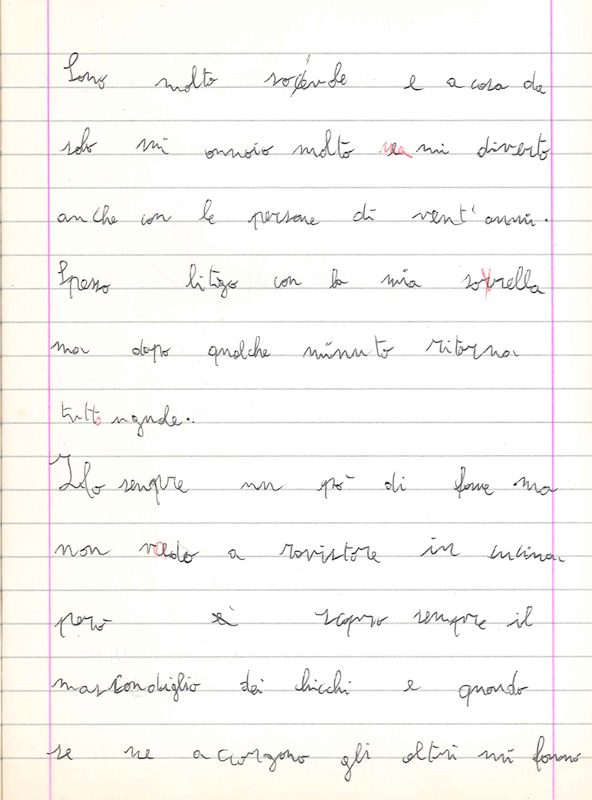 Sono molto socievole e a casa da
solo mi annoio molto ma mi diverto
anche con le persone di vent'anni.
Spesso litigo con la mia sorella
ma dopo qualche minuto ritorna
tutto uguale.
Ho sempre un pò di fame ma
non vado a rovistare in cucina
però scopro sempre il
nascondiglio dei chicchi e quando
se ne accorgono gli altri mi fanno